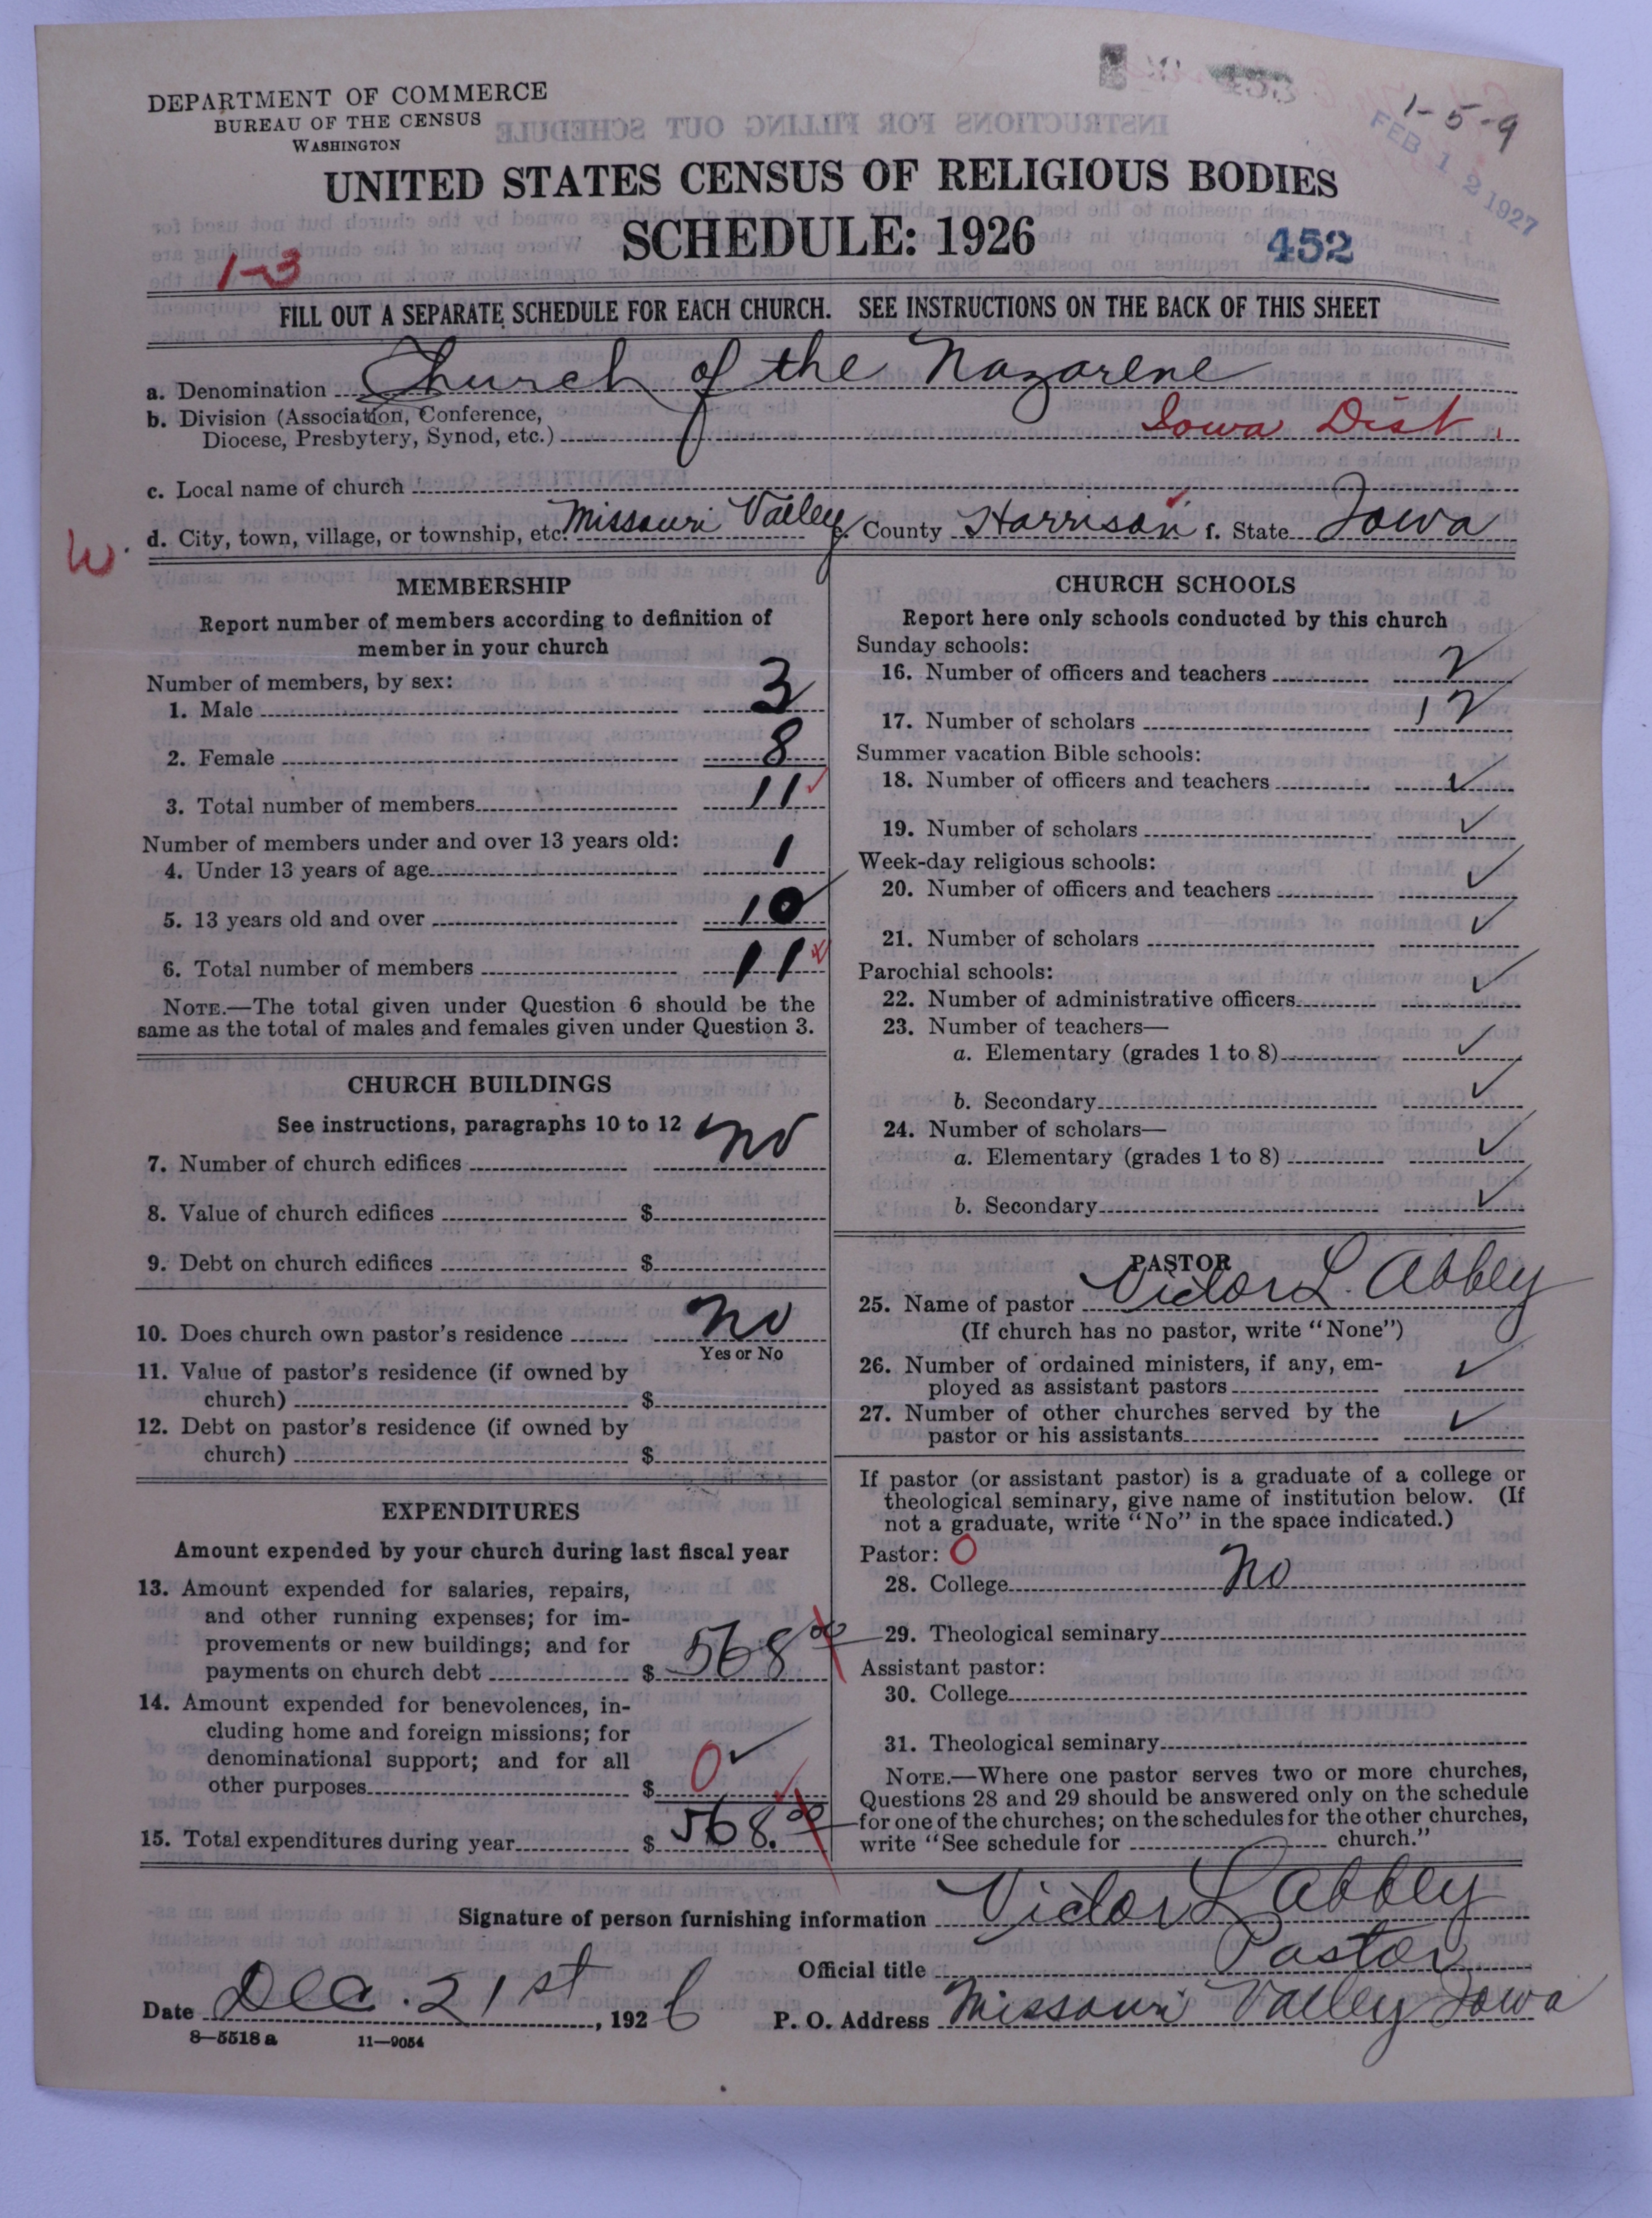 DEPARTMENT OF COMMERCE
BUREAU OF THE CENSUS
WASHINGTON
1-5-9
FEB 12 1927
UNITED STATES CENSUS OF RELIGIOUS BODIES
SCHEDULE: 1926
452
1-3
FILL OUT A SEPARATE SCHEDULE FOR EACH CHURCH. SEE INSTRUCTIONS ON THE BACK OF THIS SHEET
a. Denomination Church of the Nazarene
b. Division (Association, Conference,
Diocese, Presbytery, Synod, etc.) Iowa Dist.
c. Local name of church
W. d. City, town, village, or township, etc. Missouri Valley e. County Harrison f. State Iowa
MEMBERSHIP
Report number of members according to definition of
member in your church
Number of members, by sex:
1. Male 3
2. Female 8
3. Total number of members 11 ✓
Number of members under and over 13 years old:
4. Under 13 years of age 1
5. 13 years old and over 10
6. Total number of members 11
NOTE.—The total given under Question 6 should be the
same as the total of males and females given under Question 3.
CHURCH BUILDINGS
See instructions, paragraphs 10 to 12
7. Number of church edifices no
8. Value of church edifices $
9. Debt on church edifices $
10. Does church own pastor's residence no
Yes or No
11. Value of pastor's residence (if owned by
church) $
12. Debt on pastor's residence (if owned by
church) $
EXPENDITURES
Amount expended by your church during last fiscal year
13. Amount expended for salaries, repairs,
and other running expenses; for im-
provements or new buildings; and for
payments on church debt $ 568 00
14. Amount expended for benevolences, in-
cluding home and foreign missions; for
denominational support; and for all
other purposes $ 0 ✓
15. Total expenditures during year $ 568.00
CHURCH SCHOOLS
Report here only schools conducted by this church
Sunday schools:
16. Number of officers and teachers 2
17. Number of scholars 12
Summer vacation Bible schools:
18. Number of officers and teachers ✓
19. Number of scholars ✓
Week-day religious schools:
20. Number of officers and teachers ✓
21. Number of scholars ✓
Parochial schools:
22. Number of administrative officers ✓
23. Number of teachers—
a. Elementary (grades 1 to 8) ✓
b. Secondary ✓
24. Number of scholars—
a. Elementary (grades 1 to 8) ✓
b. Secondary ✓
PASTOR
25. Name of pastor Victor L. Abbey
(If church has no pastor, write "None")
26. Number of ordained ministers, if any, em-
ployed as assistant pastors ✓
27. Number of other churches served by the
pastor or his assistants ✓
If pastor (or assistant pastor) is a graduate of a college or
theological seminary, give name of institution below. (If
not a graduate, write "No" in the space indicated.)
Pastor: 0
28. College no
29. Theological seminary
Assistant pastor:
30. College
31. Theological seminary
NOTE.—Where one pastor serves two or more churches,
Questions 28 and 29 should be answered only on the schedule
for one of the churches; on the schedules for the other churches,
write "See schedule for church."
Signature of person furnishing information Victor L Abbey
Official title Pastor
Date Dec. 21st, 1926 P. O. Address Missouri Valley Iowa
8—5518 a 11—9054